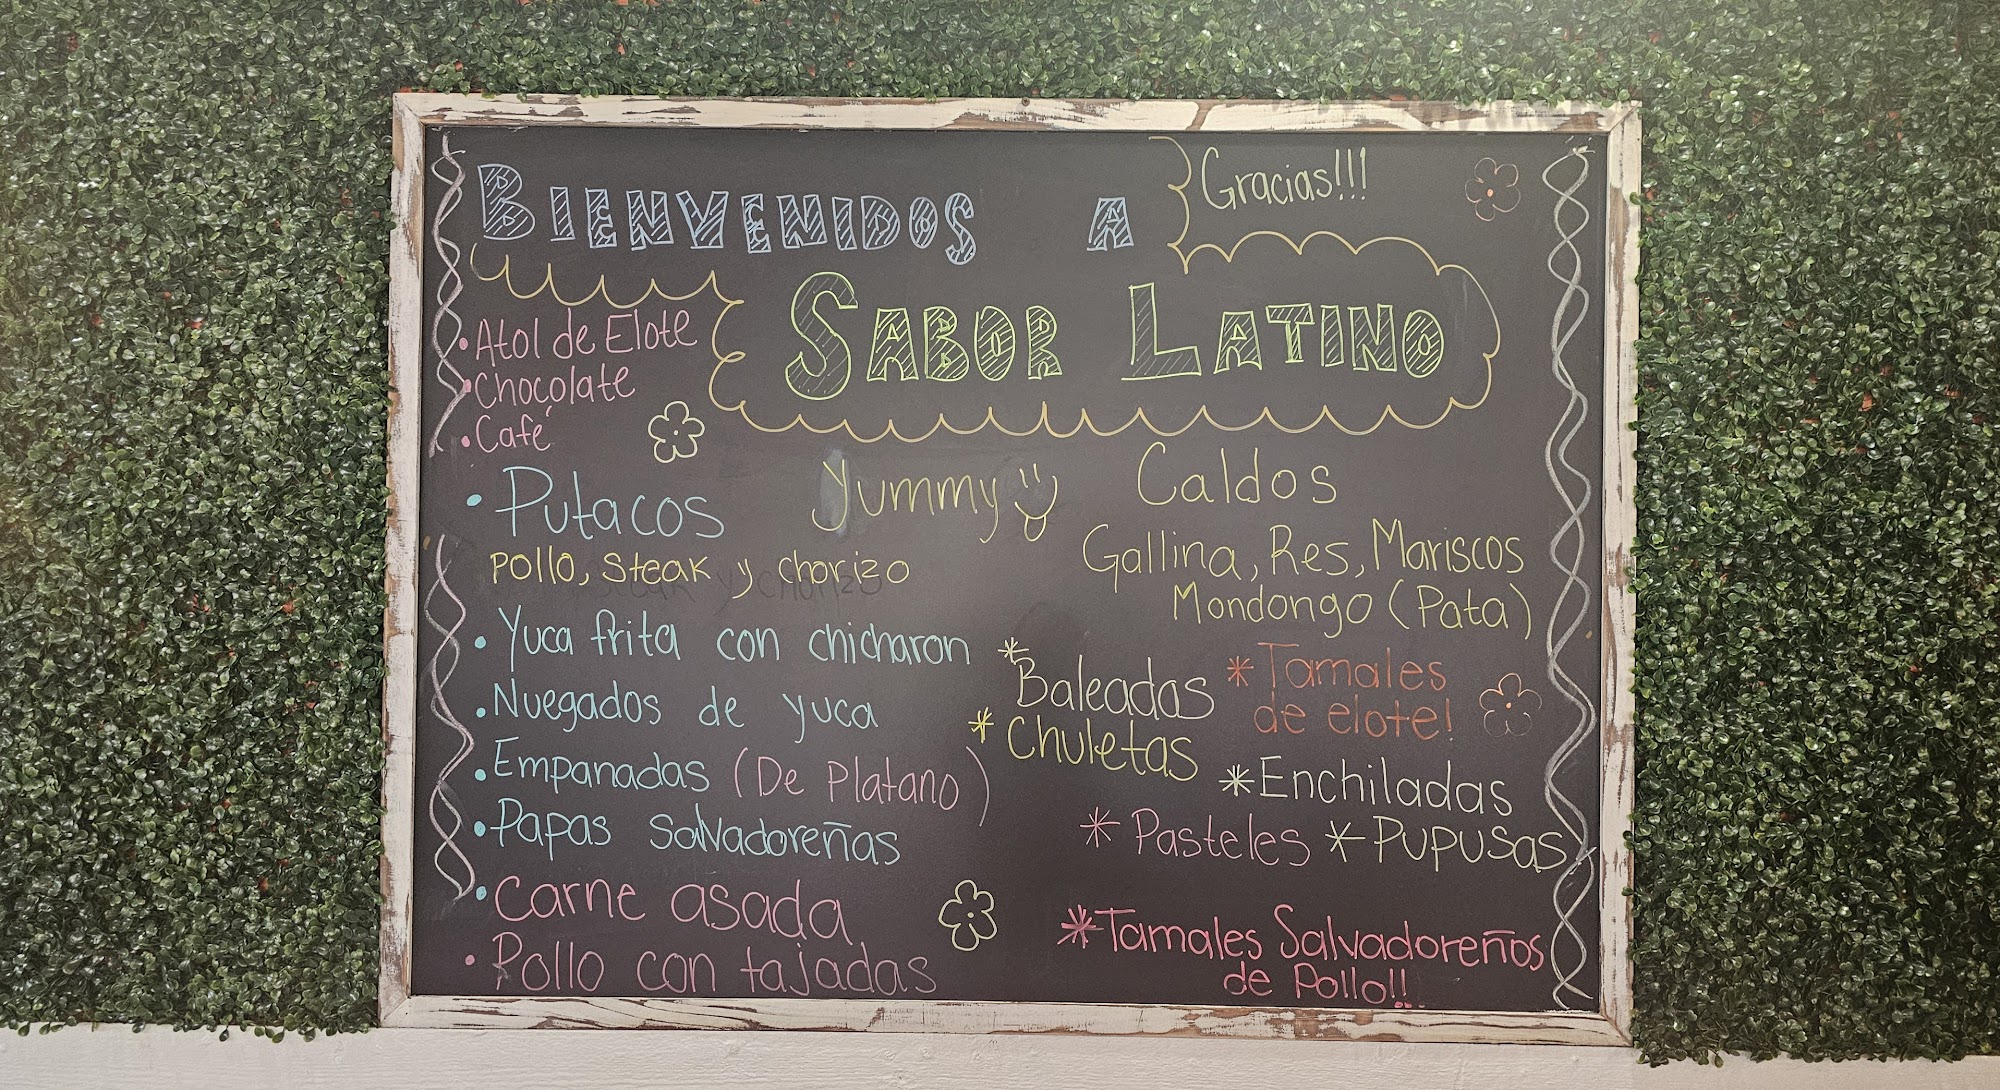 BIENVENIDOS A
Gracias!!!
SABOR LATINO
• Atol de Elote
• Chocolate
• Café
• Putacos
Pollo, Steak y chorizo
• Yuca frita con chicharon
• Nuegados de yuca
• Empanadas (De Platano)
• Papas Salvadoreñas
• Carne asada
• Pollo con tajadas
Yummy
Caldos
Gallina, Res, Mariscos
Mondongo (Pata)
* Baleadas
* Chuletas
* Tamales
de elote!
* Enchiladas
* Pasteles * Pupusas
* Tamales Salvadoreños
de Pollo!!